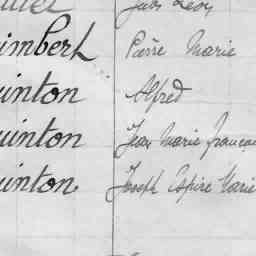 Jules Léon
imbert Pierre Marie
uinton Alfred
uinton Jean Marie françoi
uinton Joseph Marie